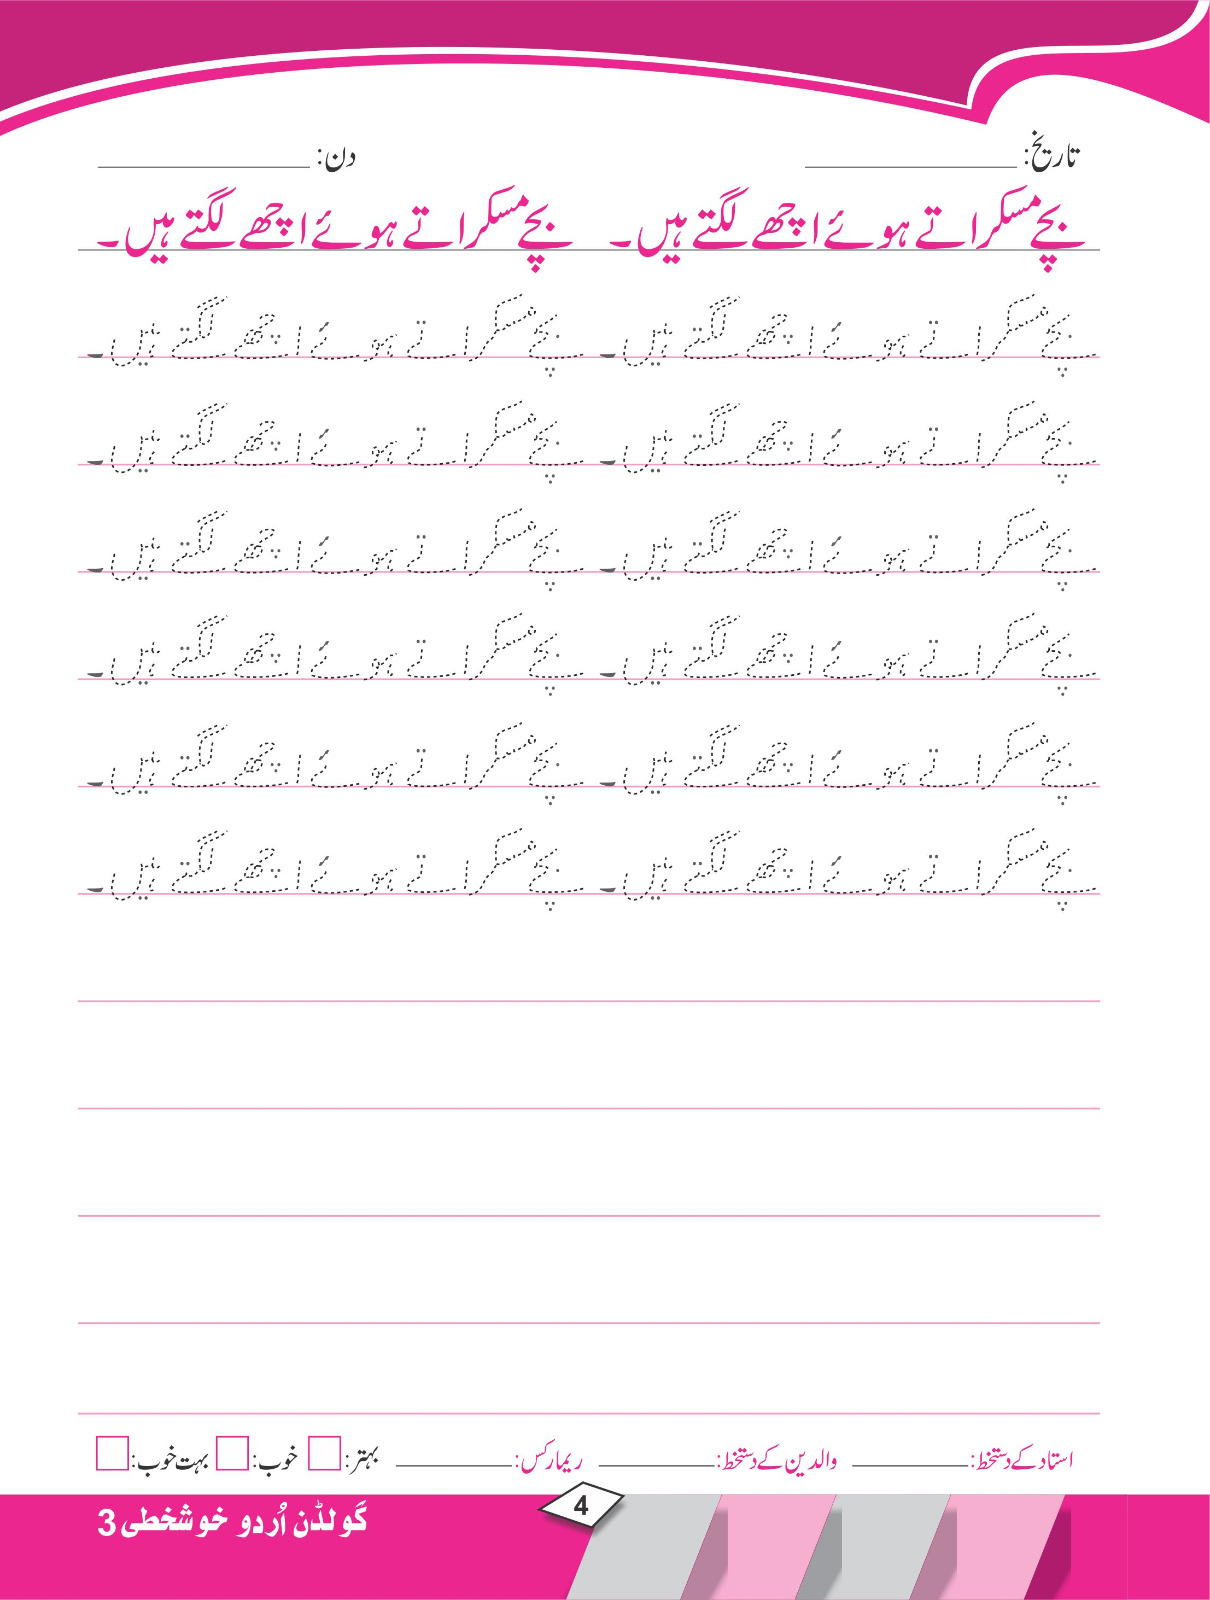 تاریخ: ____________ دن: ____________
بچے مسکراتے ہوئے اچھے لگتے ہیں۔ بچے مسکراتے ہوئے اچھے لگتے ہیں۔
بچے مسکراتے ہوئے اچھے لگتے ہیں۔ بچے مسکراتے ہوئے اچھے لگتے ہیں۔
بچے مسکراتے ہوئے اچھے لگتے ہیں۔ بچے مسکراتے ہوئے اچھے لگتے ہیں۔
بچے مسکراتے ہوئے اچھے لگتے ہیں۔ بچے مسکراتے ہوئے اچھے لگتے ہیں۔
بچے مسکراتے ہوئے اچھے لگتے ہیں۔ بچے مسکراتے ہوئے اچھے لگتے ہیں۔
بچے مسکراتے ہوئے اچھے لگتے ہیں۔ بچے مسکراتے ہوئے اچھے لگتے ہیں۔
بچے مسکراتے ہوئے اچھے لگتے ہیں۔ بچے مسکراتے ہوئے اچھے لگتے ہیں۔
استاد کے دستخط: ________ والدین کے دستخط: ________ ریمارکس: ________ بہتر: □ خوب: □ بہت خوب: □
4
گولڈن اُردو خوشخطی 3